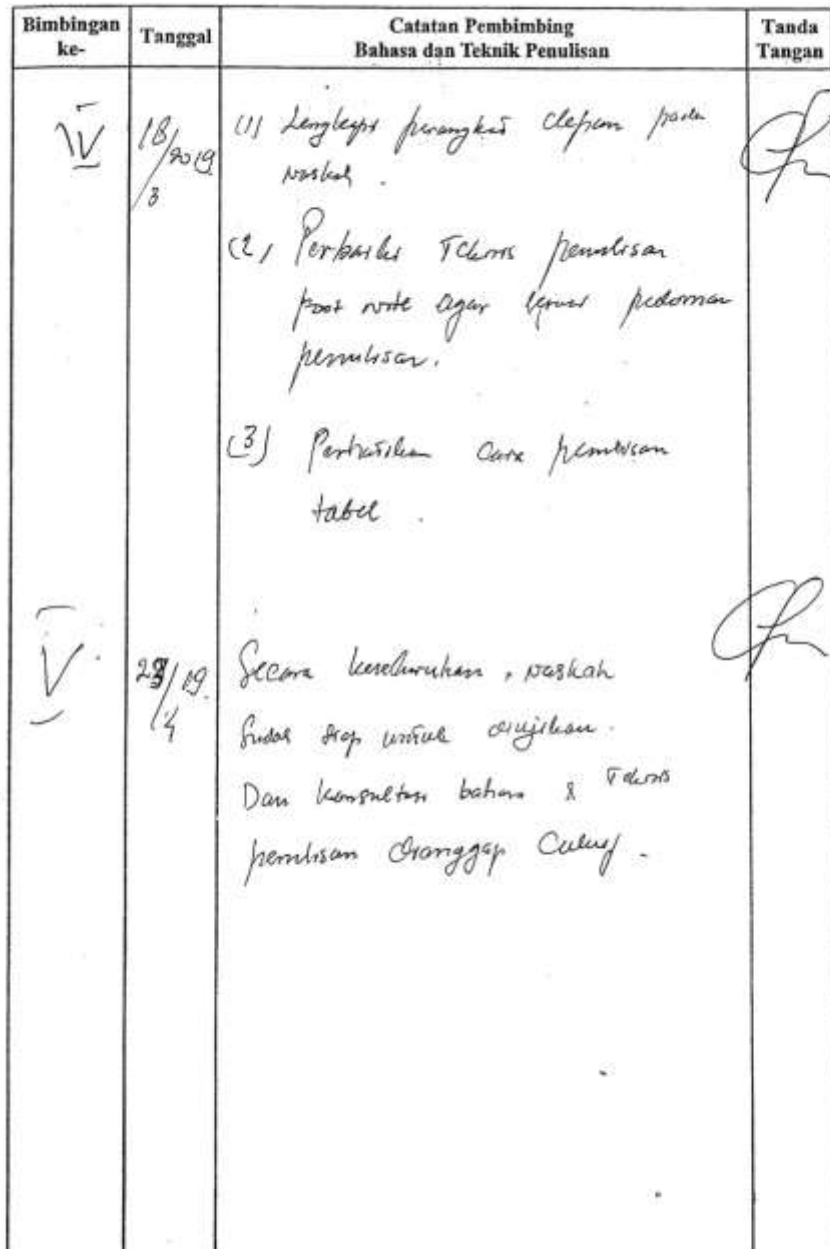 Bimbingan ke-
Tanggal
Catatan Pembimbing
Bahasa dan Teknik Penulisan
Tanda Tangan
IV
18/3 2019
(1) Lengkapi perangkat depan pada
naskah.
(2) Perbaiki Teknis penulisan
foot note agar sesuai pedoman
penulisan.
(3) Perhatikan cara penulisan
tabel.
V
/4 19.
Secara keseluruhan, naskah
sudah siap untuk diujikan.
Dan konsultasi bahasa & Teknis
penulisan dianggap cukup.